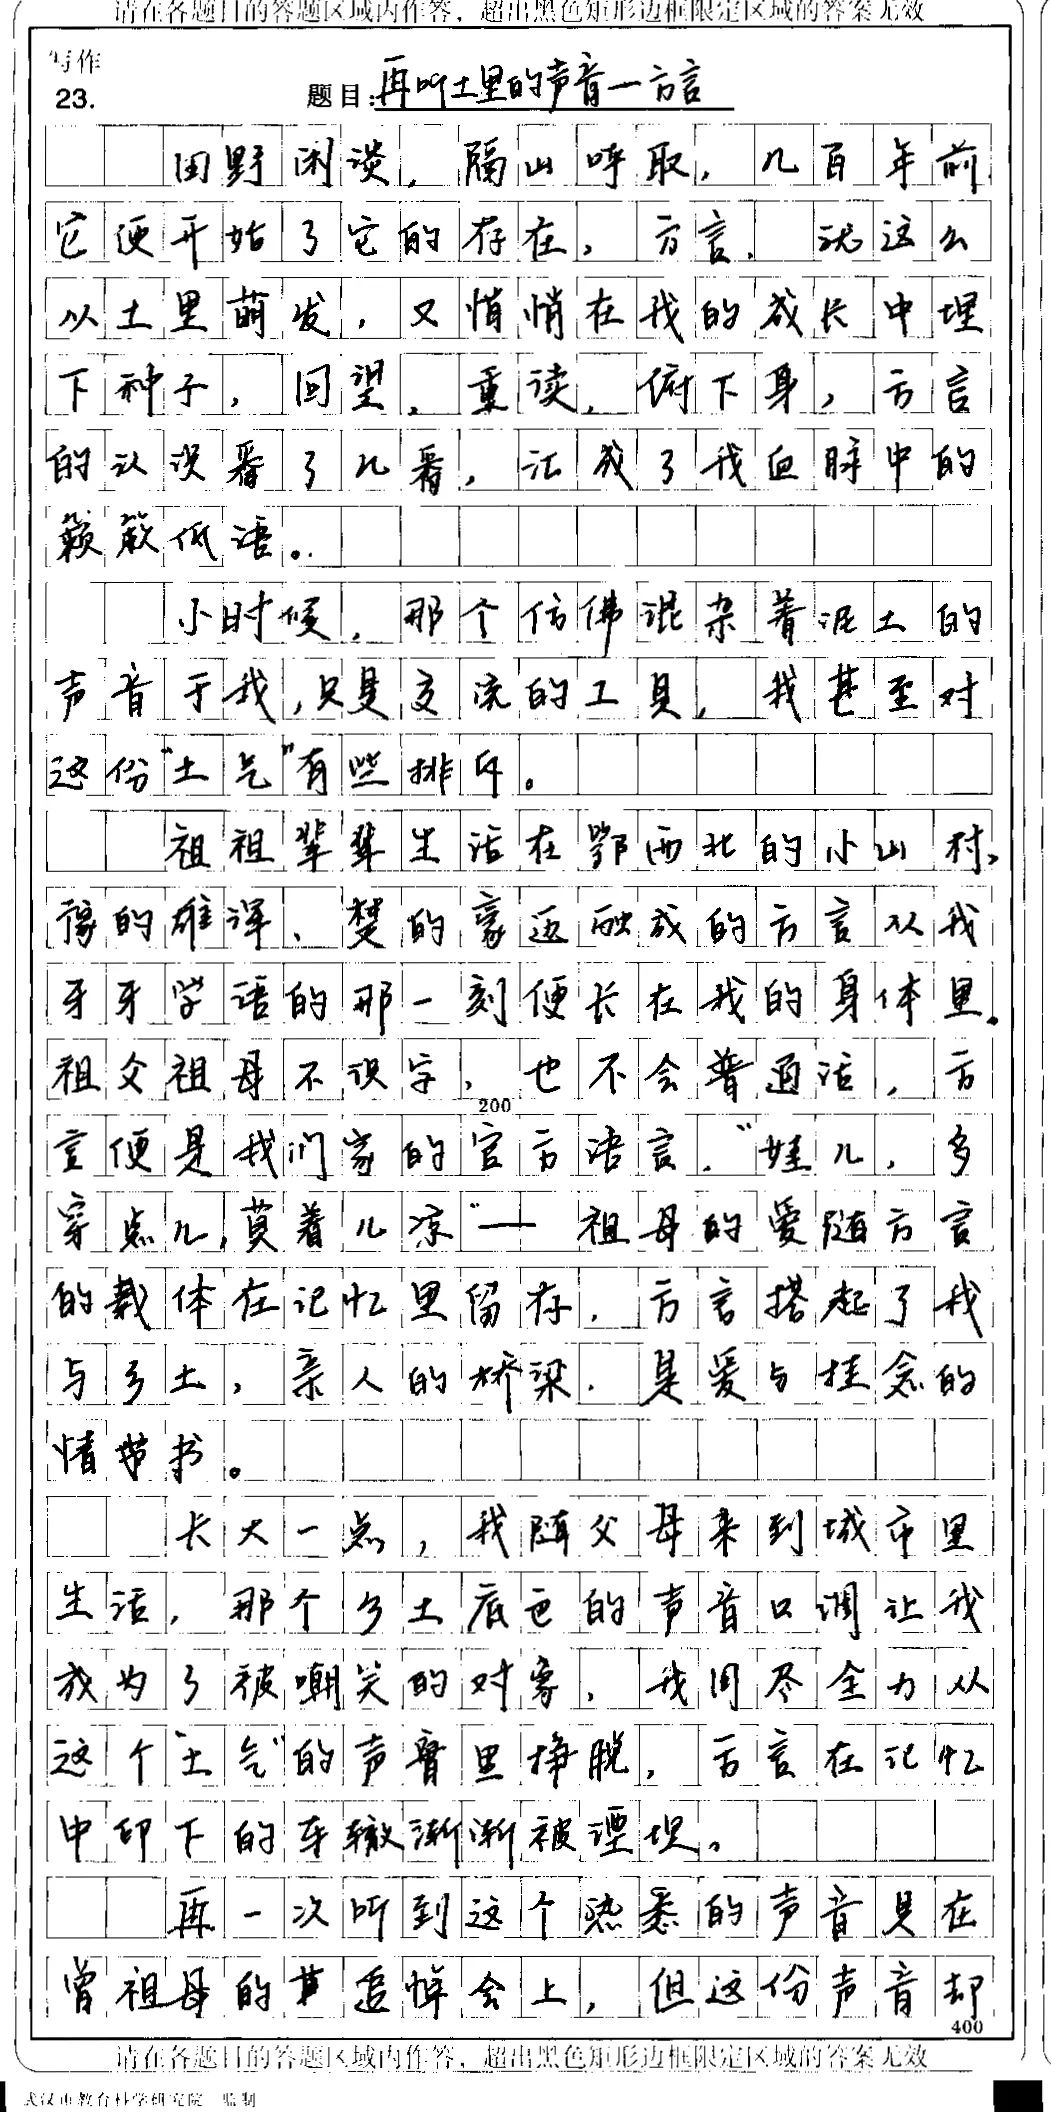 请在各题目的答题区域内作答，超出黑色矩形边框限定区域的答案无效
写作
23.
题目：再听土里的声音一方言
田野闲谈，隔山呼取，几百年前
它便开始了它的存在，方言，就这么
从土里萌发，又悄悄在我的成长中埋
下种子，回望，重读，俯下身，方言
的认识番了几番，活成了我血脉中的
籁簌低语。
小时候，那个仿佛混杂着泥土的
声音于我，只是交流的工具，我甚至对
这份“土气”有些排斥。
祖祖辈辈生活在鄂西北的小山村，
豫的雄浑、楚的豪迈融成的方言从我
牙牙学语的那一刻便长在我的身体里。
祖父祖母不识字，也不会普通话，方
200
言便是我们家的官方语言，“娃儿，多
穿点儿，莫着儿凉”——祖母的爱随方言
的载体在记忆里留存，方言搭起了我
与乡土，亲人的桥梁，是爱与挂念的
情书。
长大一点，我随父母来到城市里
生活，那个乡土底色的声音口调让我
成为了被嘲笑的对象，我用尽全力从
这个“土气”的声音里挣脱，方言在记忆
中印下的车辙渐渐被湮坦。
再一次听到这个熟悉的声音是在
曾祖母的追悼会上，但这份声音却
400
请在各题目的答题区域内作答，超出黑色矩形边框限定区域的答案无效
武汉市教育科学研究院 监制